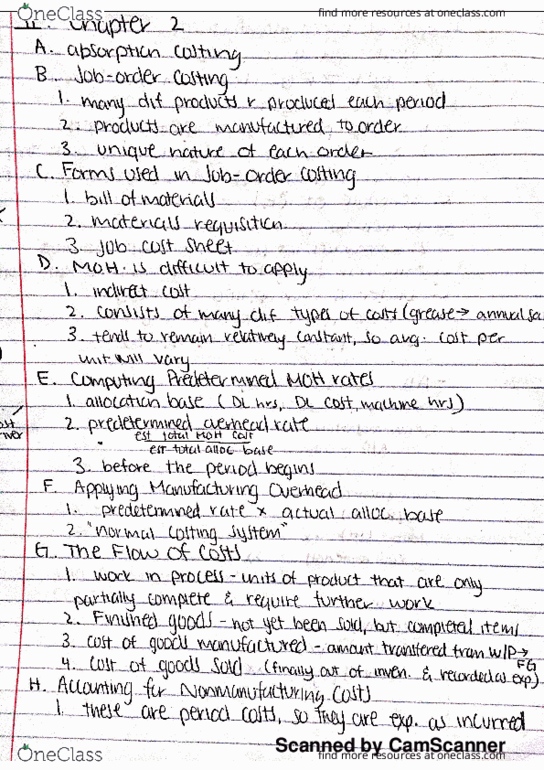 OneClass find more resources at oneclass.com
II. Chapter 2
A. absorption costing
B. Job-order costing
1. many dif products r produced each period
2. products are manufactured to order
3. unique nature of each order
C. Forms used in Job-Order costing
1. bill of materials
2. materials requisition
3. job cost sheet
D. MOH is difficult to apply
1. indirect cost
2. consists of many dif types of costs (grease → annual sa
3. tends to remain relatively constant, so avg. cost per
unit will vary
E. Computing Predetermined MOH rates
1. allocation base (DL hrs, DL cost, machine hrs)
2. predetermined overhead rate
est total MOH cost
est total alloc base
3. before the period begins
F. Applying Manufacturing Overhead
1. predetermined rate × actual alloc base
2. "normal costing system"
G. The Flow of Costs
1. work in process - units of product that are only
partially complete & require further work
2. Finished goods - not yet been sold, but completed items
3. cost of goods manufactured - amount transfered from WIP→
FG
4. Cost of goods sold (finally out of inven. & recorded as exp)
H. Accounting for Nonmanufacturing Costs
1. these are period costs, so they are exp. as incurred
Scanned by CamScanner
OneClass find more resources at oneclass.com